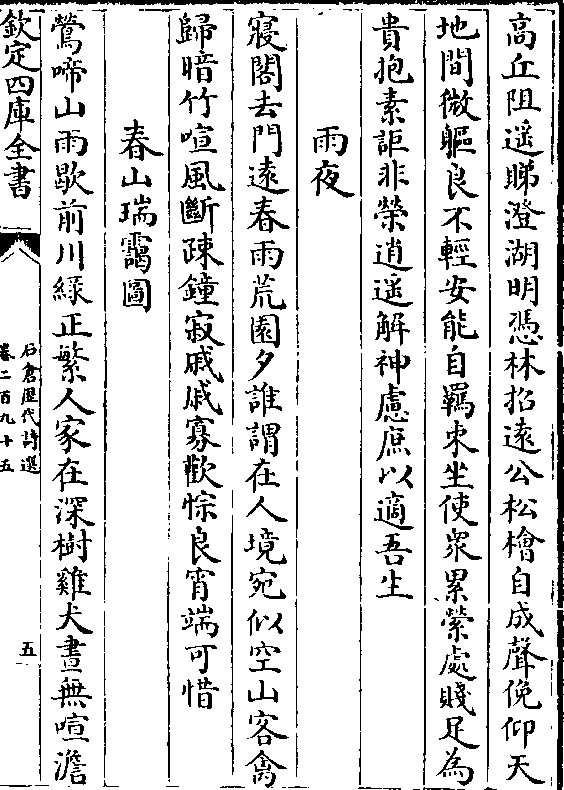 高丘阻遥睇澄湖明憑林招遠公松檜自成聲俛仰天
地間微軀良不輕安能自羈束坐使衆累縈處賤足為
貴抱素詎非榮逍遥解神慮庶以適吾生
雨夜
寢閣去門遠春雨荒園夕誰謂在人境宛似空山客禽
歸暗竹喧風斷疎鐘寂戚戚寡歡悰良宵端可惜
春山瑞靄圖
鶯啼山雨歇前川緑正繁人家在深樹雞犬晝無喧澹
欽定四庫全書
石倉歷代詩選
卷二百九十五
五